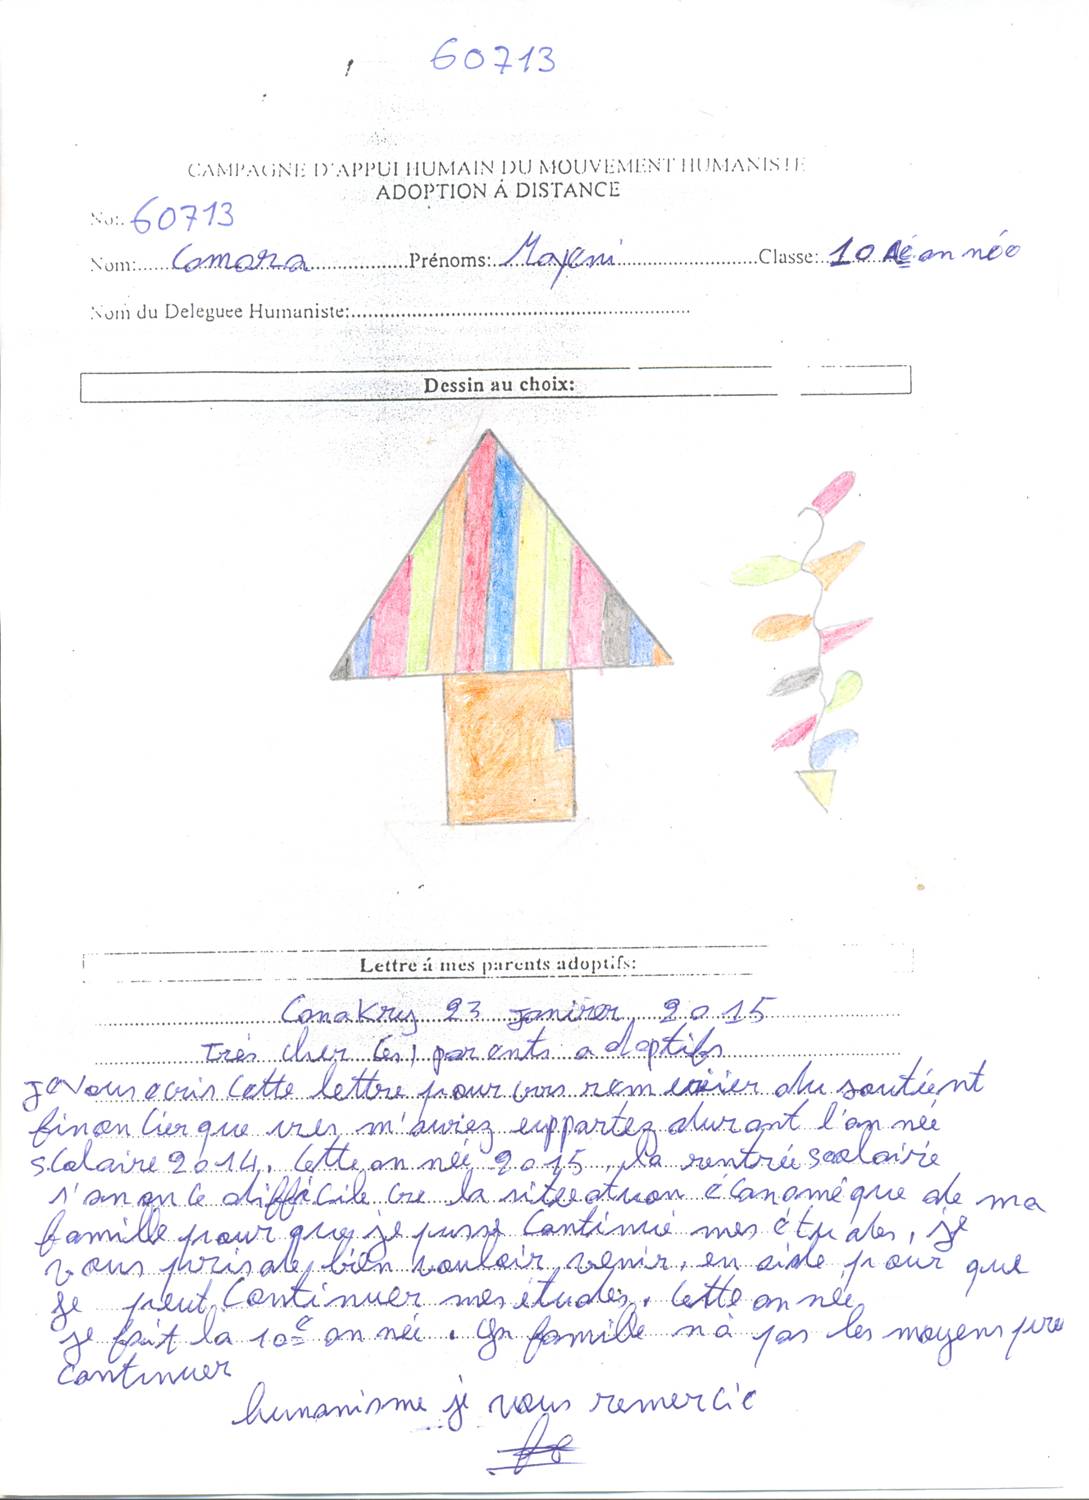 60713
CAMPAGNE D'APPUI HUMAIN DU MOUVEMENT HUMANISTE
ADOPTION Á DISTANCE
No:. 60713
Nom:..... Camara ..................Prénoms:.. ......................Classe:.. 10 è année
Nom du Deleguee Humaniste:...........................................................
Dessin au choix:
Lettre á mes parents adoptifs:
Conakry 23 2015
Très cher (es) parents adoptifs
je vous ecris cette lettre pour remercier du soutient
financier que m' durant l'année
scolaire 2014. cette année 2015. la rentrée scolaire
s'anonce difficile la de ma
famille pour que je puisse continué mes études, je
vous pris de bien vouloir venir en aide pour que
je peut continuer mes études. cette année
je fait la 10e année. famille n'à pas les moyens
continuer
humanisme je vous remercie